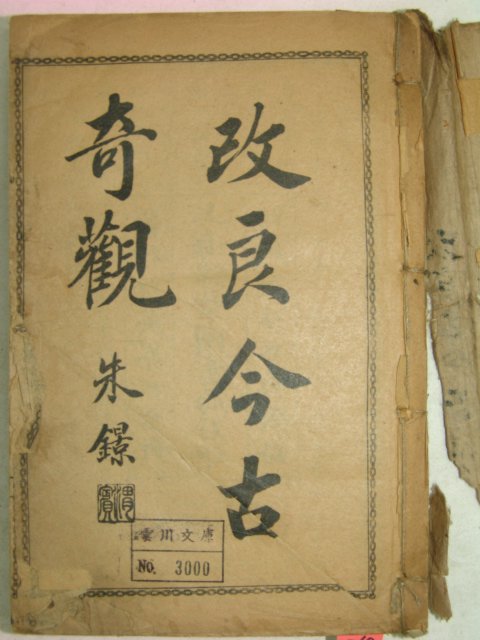 改良今古
奇觀
朱鐛
雲川文庫
No. 3000